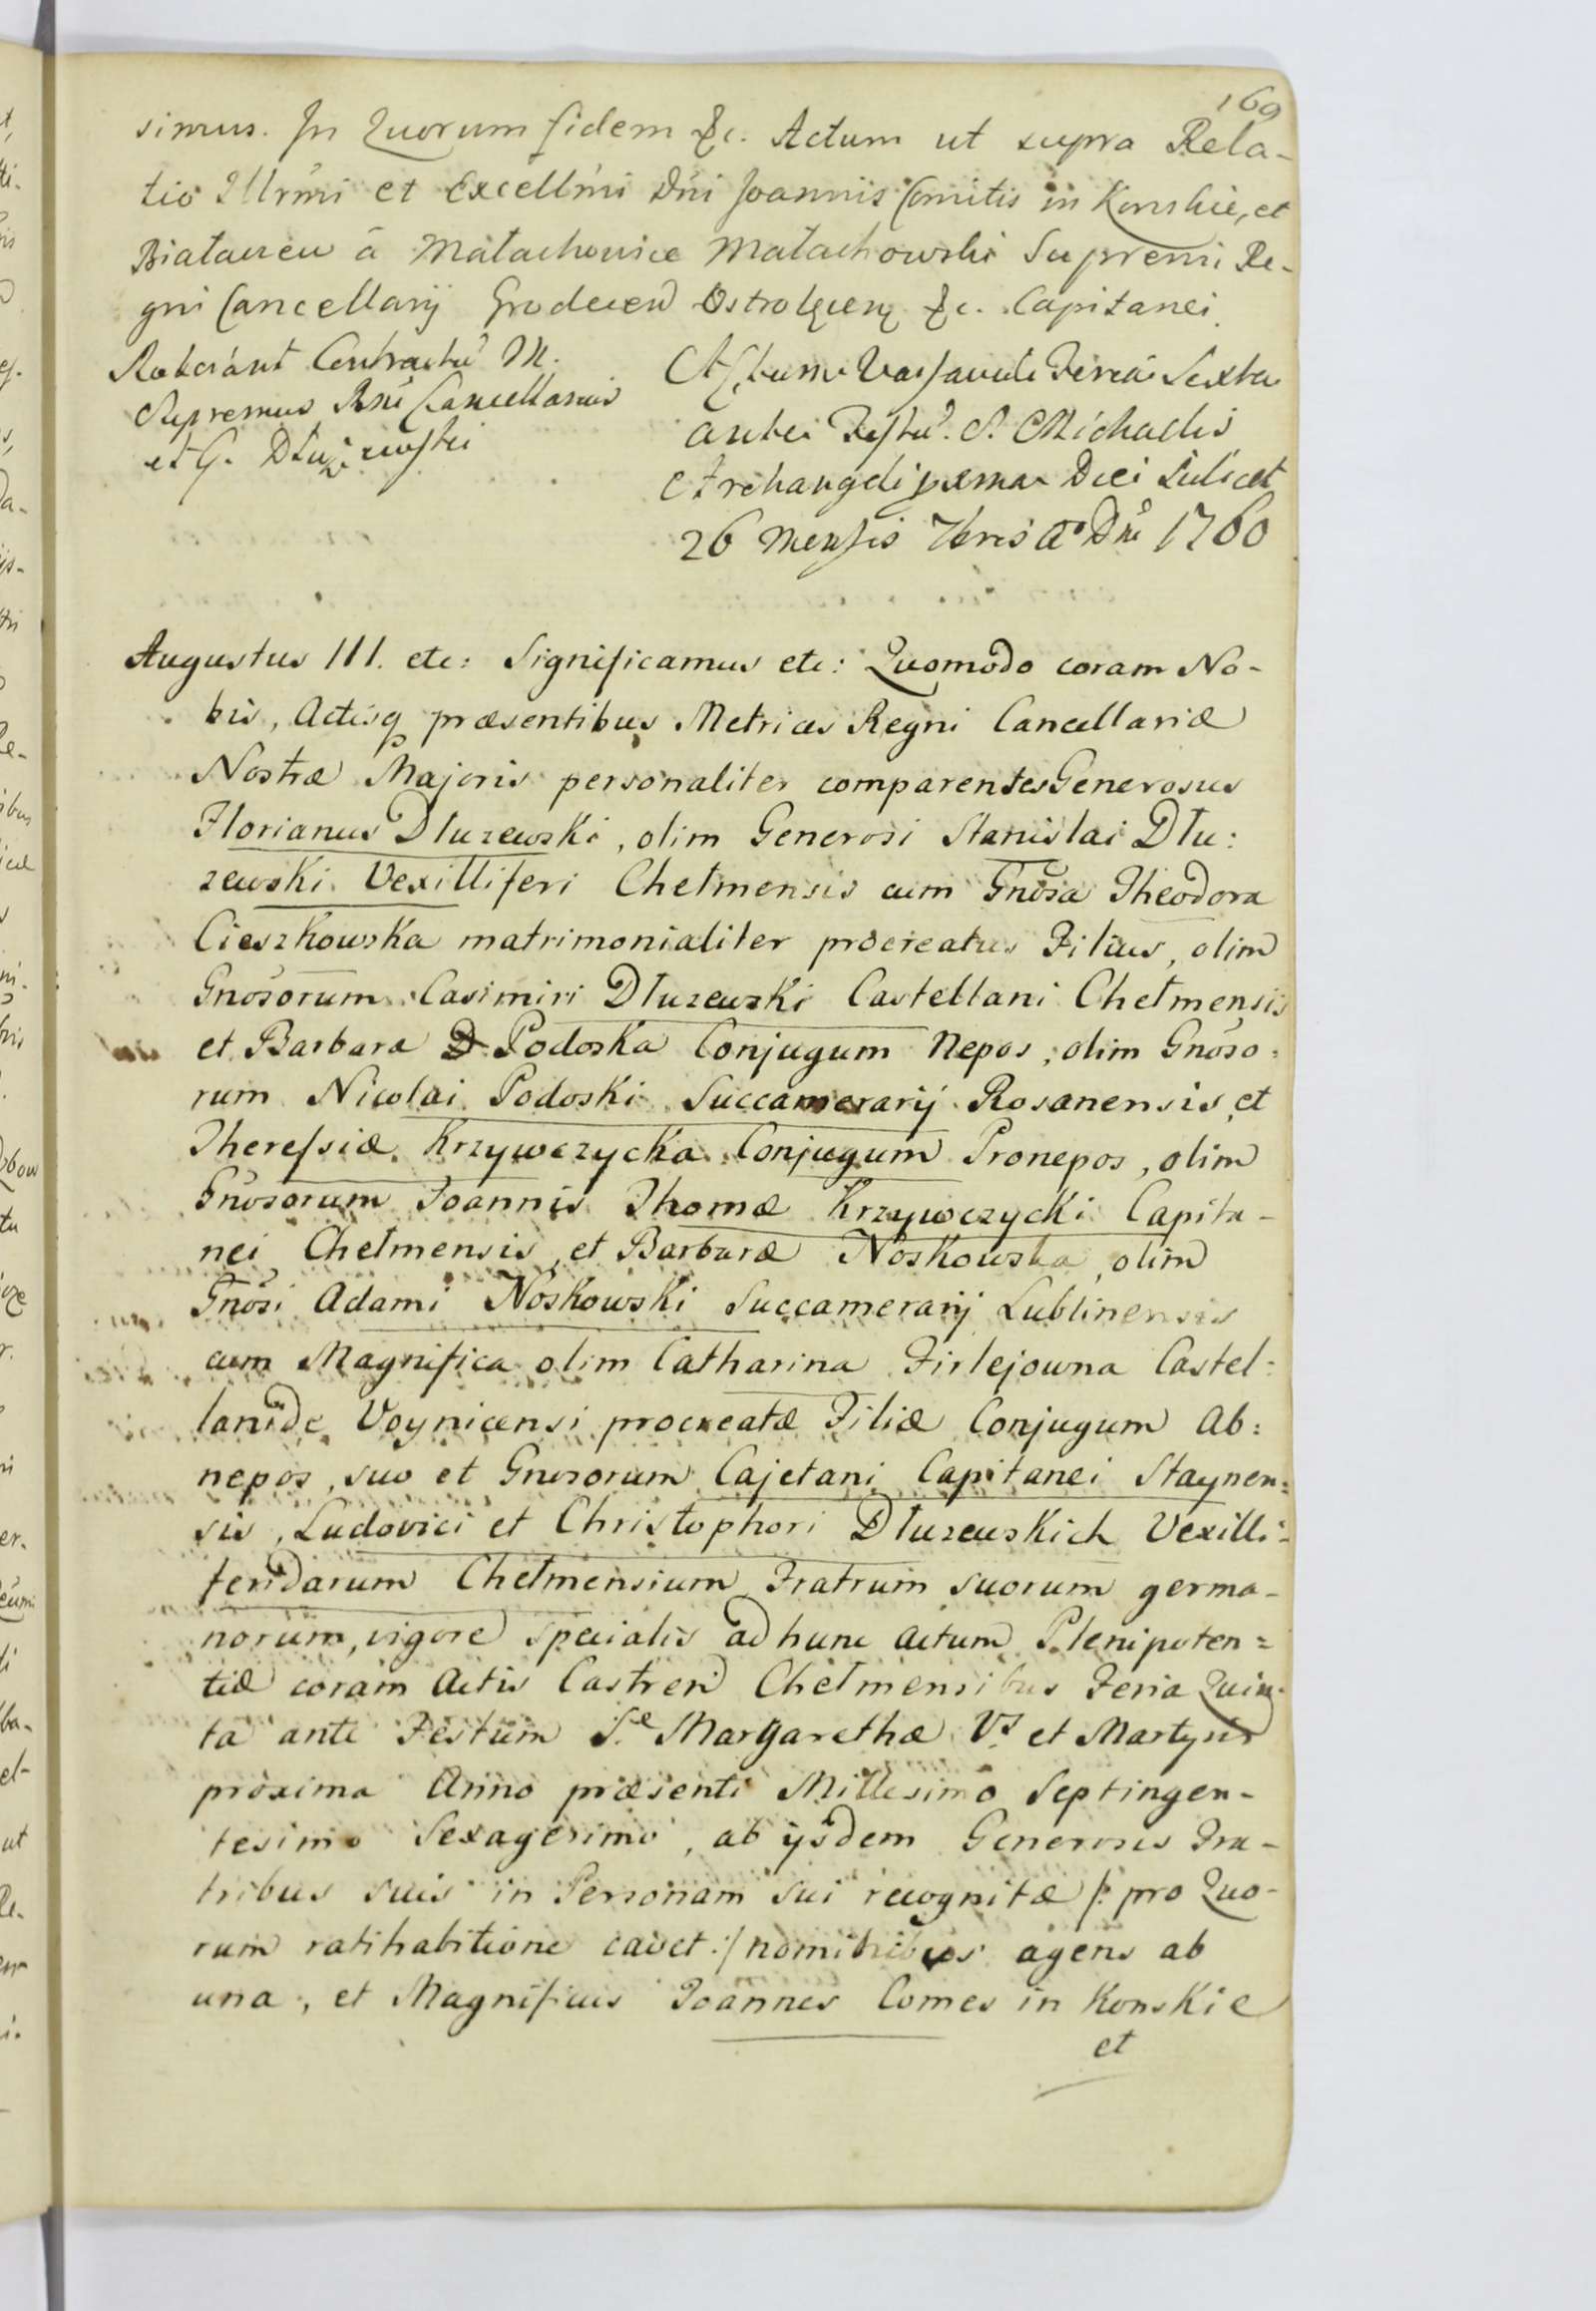 169
simus. In Quorum fidem &c. Actum ut supra Rela-
tio Illrmi et Excellmi Dni Joannis Comitis in Konskie, et
Białaczew à Małachowice Małachowski Supremi Re-
gni Cancellarij Grodecen Ostrołęcen &c. Capitanei
Roborant Contractū M.
Supremus Rni Cancellarius
et G. Dłużewski
Actum Varsaviæ Feria Sexta
ante Festū S. Michaelis
Archangeli pxma Die Scilicet
26 Mensis 7bris Aº Dni 1760
Augustus III. etc: Significamus etc: Quomodo coram No-
bis, Actisq præsentibus Metrices Regni Cancellariæ
Nostræ Majoris personaliter comparentes Generosus
Florianus Dłuzewski, olim Generosi Stanislai Dłu:
zewski Vexilliferi Chełmensis cum Gnosa Theodora
Cieszkowska matrimonialiter procreatus Filius, olim
Gnosorum Casimiri Dłuzewski Castellani Chełmensis
et Barbara D Podoska Conjugum Nepos, olim Gnoso:
rum Nicolai Podoski Succamerarij Rosanensis et
Theressiæ Krzywczycka Conjugum Pronepos, olim
Gnosorum Joannis Thomæ Krzywczycki Capita-
nei Chełmensis, et Barbaræ Noskowska, olim
Gnosi Adami Noskowski Succamerarij Lublinensis
cum Magnifica olim Catharina Firlejowna Castel:
lanide Voynicensi procreatæ Filiæ Conjugum Ab:
nepos, suo et Gnosorum Cajetani Capitanei Staynen:
sis, Ludovici et Christophori Dłuzewskich Vexilli:
feridarum Chełmensium Fratrum suorum germa-
norum, vigore specialis ad hunc actum Plenipoten=
tiæ coram Actis Castren Chełmensibus Feria Quin-
ta ante Festum S.e Margarethæ V.s et Martyris
proxima Anno præsenti Millesimo Septingen-
tesimo Sexagesimo, ab ijsdem Generosis Fra-
tribus suis in Personam sui recognitæ /: pro Quo-
rum ratihabitione cavet :/ nominibus agens ab
una, et Magnificus Joannes Comes in Konskie
et